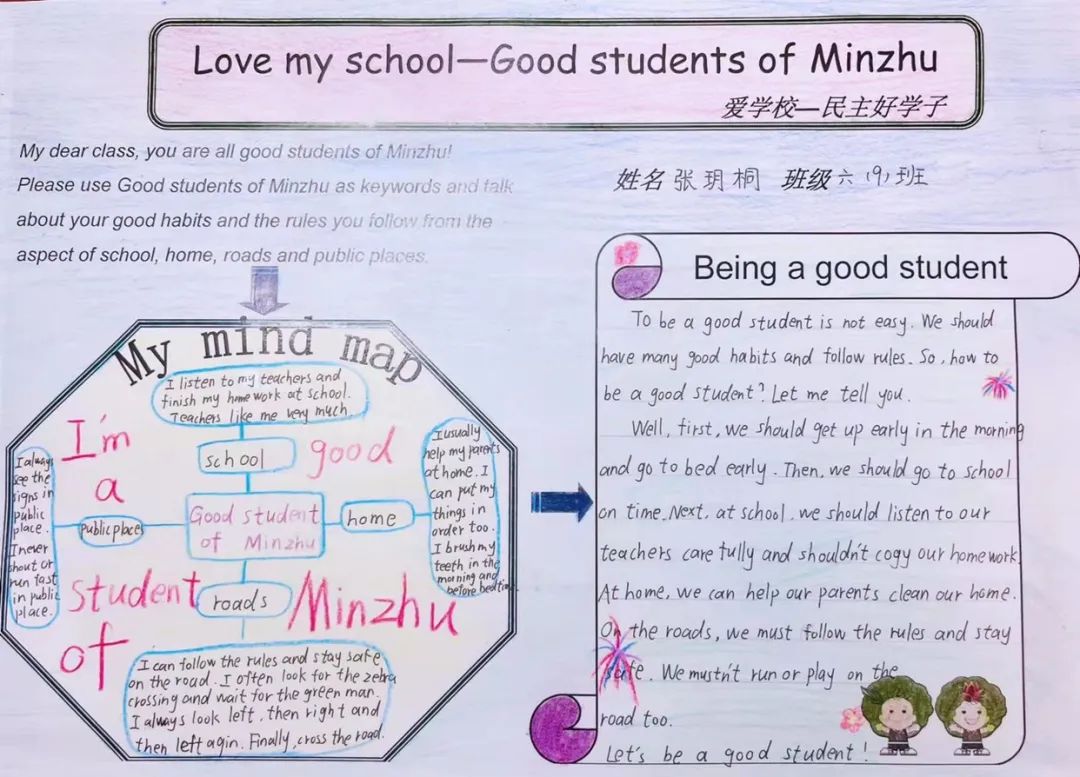 Love my school—Good students of Minzhu
爱学校—民主好学子
My dear class, you are all good students of Minzhu!
Please use Good students of Minzhu as keywords and talk
about your good habits and the rules you follow from the
aspect of school, home, roads and public places.
姓名 张玥桐 班级 六(9)班
My mind map
I listen to my teachers and
finish my homework at school.
Teachers like me very much.
I'm
a
good
student
of
Minzhu
school
Good student
of Minzhu
home
Public places
roads
I always
see the
signs in
public
place.
I never
shout or
run fast
in public
place.
I usually
help my parents
at home. I
can put my
things in
order too.
I brush my
teeth in the
morning and
before bedtime.
I can follow the rules and stay safe
on the road. I often look for the zebra
crossing and wait for the green man.
I always look left, then right and
then left agin. Finally, cross the road.
Being a good student
To be a good student is not easy. We should
have many good habits and follow rules. So, how to
be a good student? Let me tell you.
Well, first, we should get up early in the morning
and go to bed early. Then, we should go to school
on time. Next, at school, we should listen to our
teachers carefully and shouldn't cogy our homework.
At home, we can help our parents clean our home.
On the roads, we must follow the rules and stay
safe. We mustn't run or play on the
road too.
Let's be a good student!